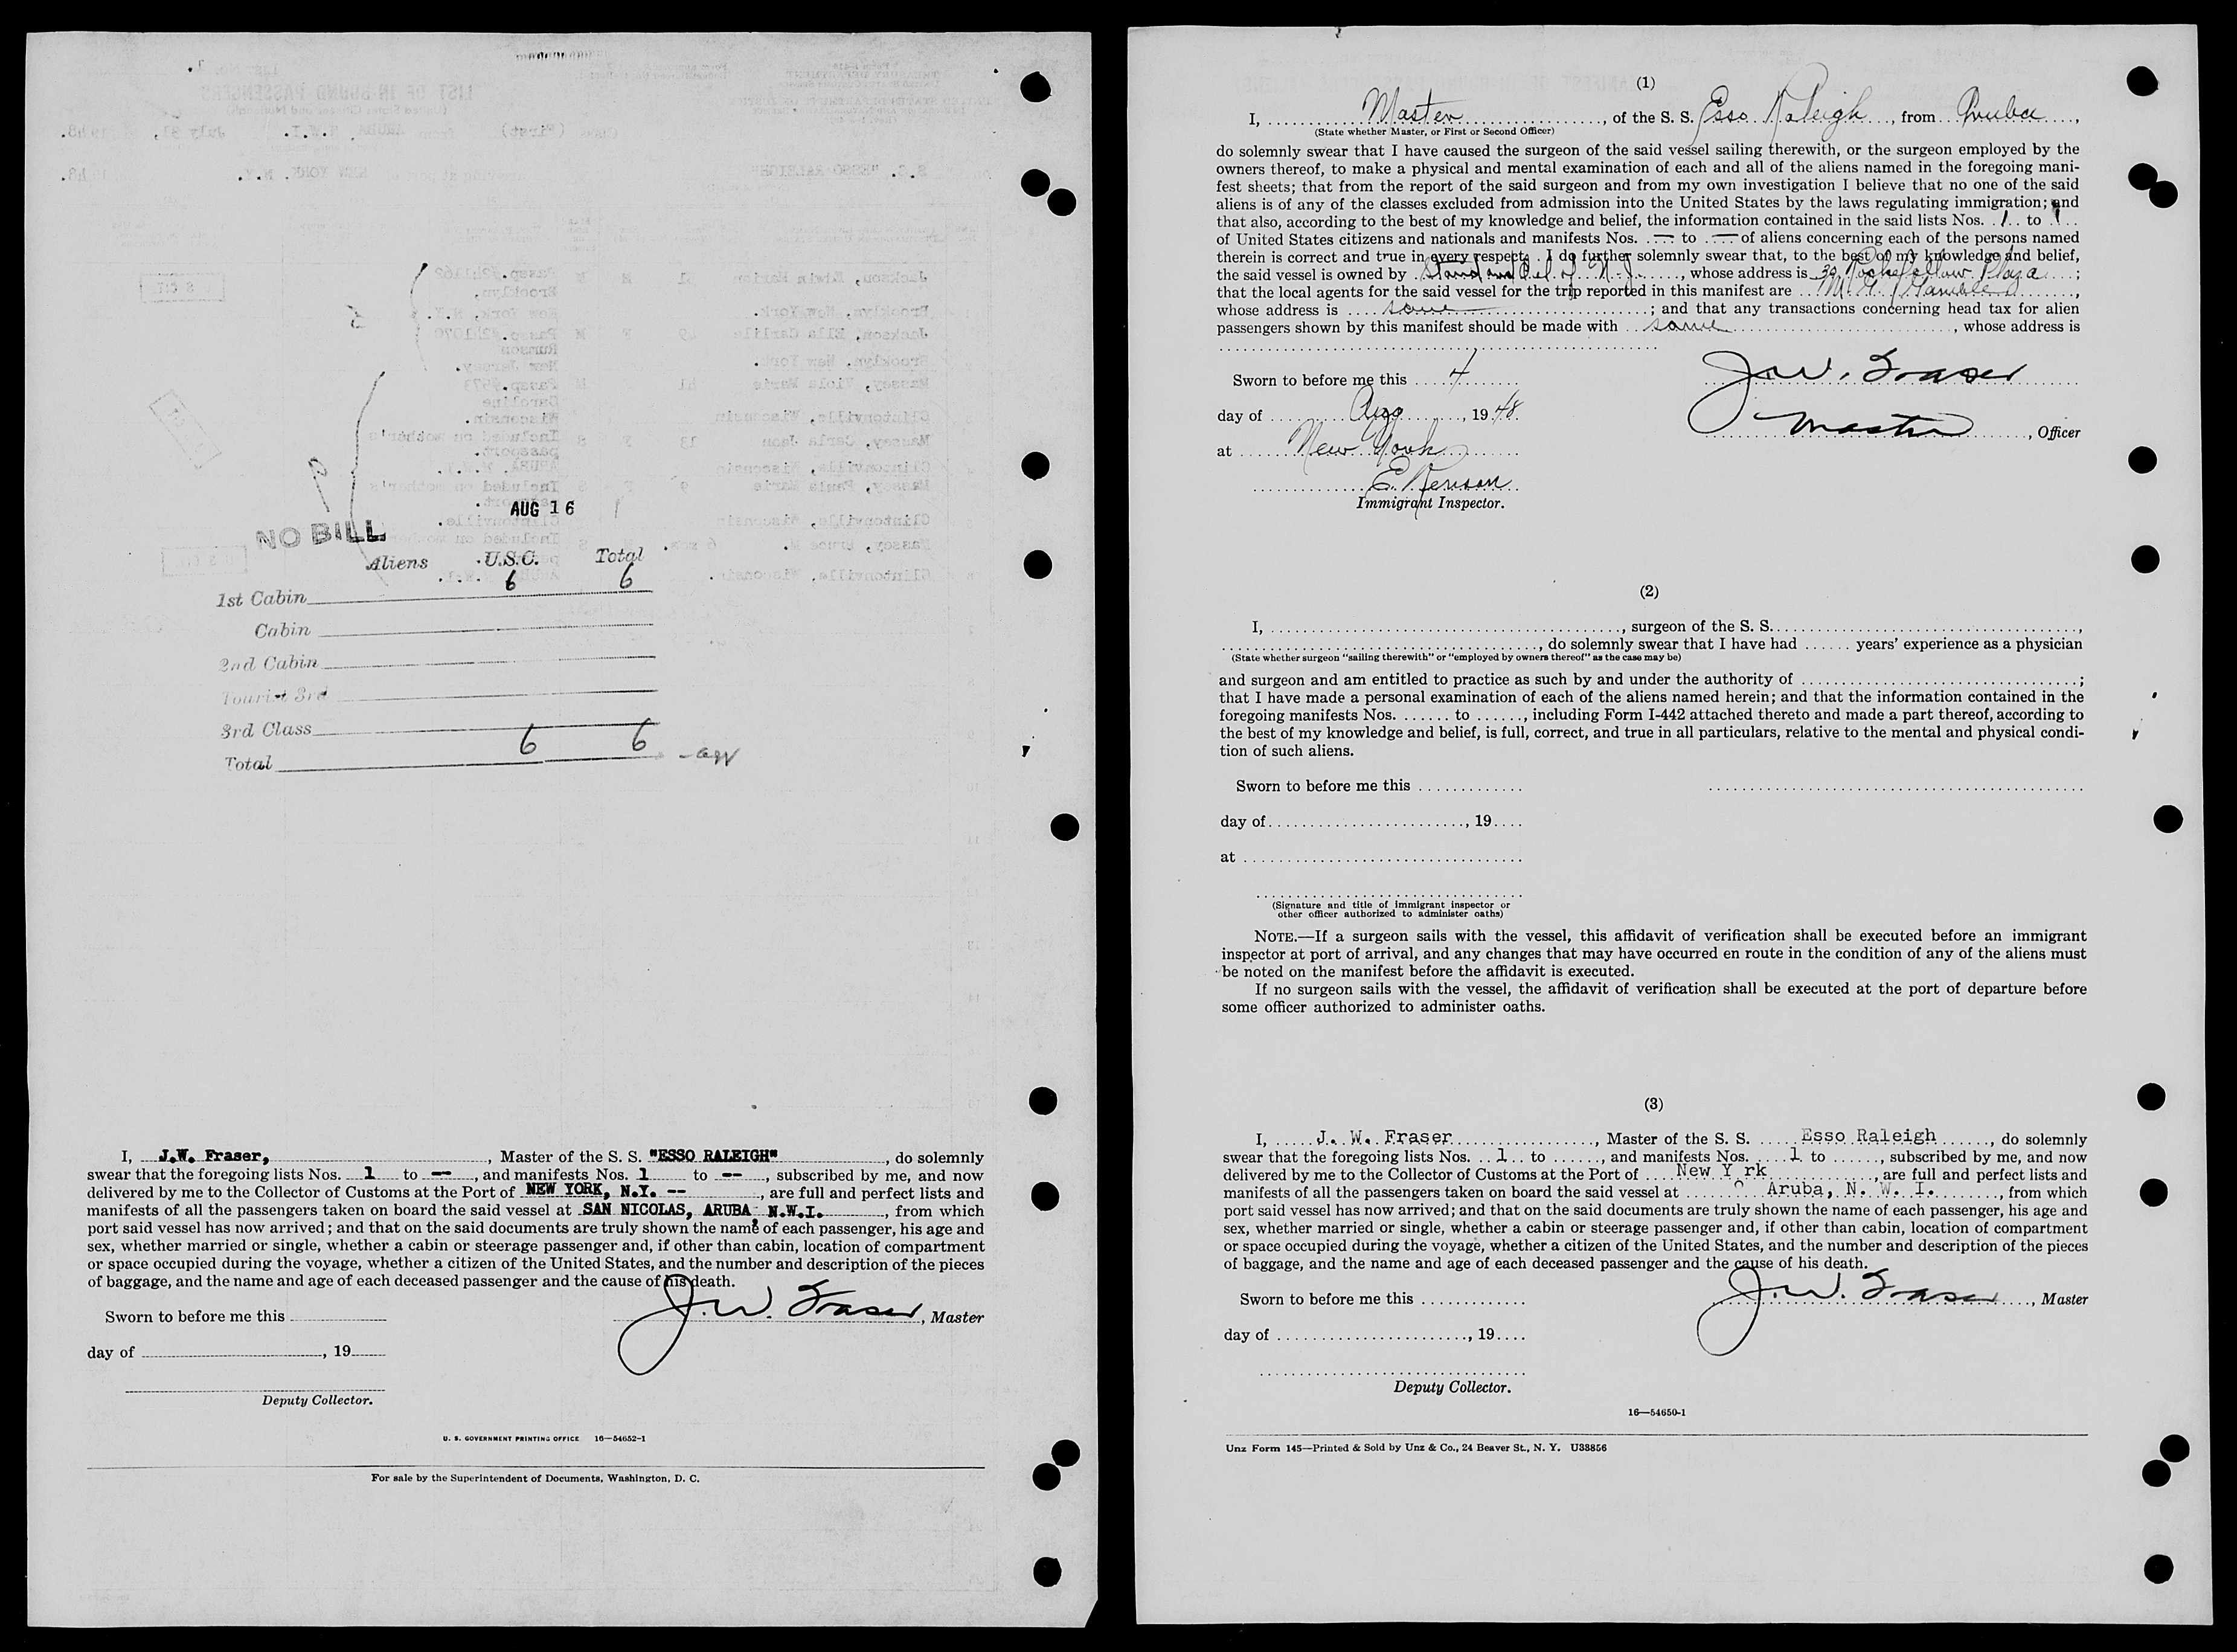 AUG 16
NO BILL
Aliens U.S.C. Total
1st Cabin 6 6
Cabin
2nd Cabin
Tourist 3rd
3rd Class
Total 6 6
I, J.W. Fraser, , Master of the S. S. "ESSO RALEIGH" , do solemnly
swear that the foregoing lists Nos. 1 to -- , and manifests Nos. 1 to -- , subscribed by me, and now
delivered by me to the Collector of Customs at the Port of NEW YORK, N.Y. -- , are full and perfect lists and
manifests of all the passengers taken on board the said vessel at SAN NICOLAS, ARUBA, N.W.I. , from which
port said vessel has now arrived; and that on the said documents are truly shown the name of each passenger, his age and
sex, whether married or single, whether a cabin or steerage passenger and, if other than cabin, location of compartment
or space occupied during the voyage, whether a citizen of the United States, and the number and description of the pieces
of baggage, and the name and age of each deceased passenger and the cause of his death.
Sworn to before me this
J.W. Fraser, Master
day of , 19
Deputy Collector.
U. S. GOVERNMENT PRINTING OFFICE 16—54652-1
For sale by the Superintendent of Documents, Washington, D. C.
(1)
I, Master , of the S. S. Esso Raleigh , from Aruba ,
(State whether Master, or First or Second Officer)
do solemnly swear that I have caused the surgeon of the said vessel sailing therewith, or the surgeon employed by the
owners thereof, to make a physical and mental examination of each and all of the aliens named in the foregoing mani-
fest sheets; that from the report of the said surgeon and from my own investigation I believe that no one of the said
aliens is of any of the classes excluded from admission into the United States by the laws regulating immigration; and
that also, according to the best of my knowledge and belief, the information contained in the said lists Nos. 1 to 1
of United States citizens and nationals and manifests Nos. — to — of aliens concerning each of the persons named
therein is correct and true in every respect. I do further solemnly swear that, to the best of my knowledge and belief,
the said vessel is owned by Standard Oil of N. J. , whose address is 30 Rockefellow Plaza ;
that the local agents for the said vessel for the trip reported in this manifest are M. G. Gamble ,
whose address is same ; and that any transactions concerning head tax for alien
passengers shown by this manifest should be made with same , whose address is
Sworn to before me this 4
J.W. Fraser
day of Aug , 1948
Master , Officer
at New York
Immigrant Inspector.
(2)
I, , surgeon of the S. S. ,
, do solemnly swear that I have had years' experience as a physician
(State whether surgeon "sailing therewith" or "employed by owners thereof" as the case may be)
and surgeon and am entitled to practice as such by and under the authority of ;
that I have made a personal examination of each of the aliens named herein; and that the information contained in the
foregoing manifests Nos. to , including Form I-442 attached thereto and made a part thereof, according to
the best of my knowledge and belief, is full, correct, and true in all particulars, relative to the mental and physical condi-
tion of such aliens.
Sworn to before me this
day of , 19
at
(Signature and title of immigrant inspector or
other officer authorized to administer oaths)
NOTE.—If a surgeon sails with the vessel, this affidavit of verification shall be executed before an immigrant
inspector at port of arrival, and any changes that may have occurred en route in the condition of any of the aliens must
be noted on the manifest before the affidavit is executed.
If no surgeon sails with the vessel, the affidavit of verification shall be executed at the port of departure before
some officer authorized to administer oaths.
(3)
I, J. W. Fraser , Master of the S. S. Esso Raleigh , do solemnly
swear that the foregoing lists Nos. 1 to , and manifests Nos. 1 to , subscribed by me, and now
delivered by me to the Collector of Customs at the Port of New Y rk , are full and perfect lists and
manifests of all the passengers taken on board the said vessel at Aruba, N. W. I. , from which
port said vessel has now arrived; and that on the said documents are truly shown the name of each passenger, his age and
sex, whether married or single, whether a cabin or steerage passenger and, if other than cabin, location of compartment
or space occupied during the voyage, whether a citizen of the United States, and the number and description of the pieces
of baggage, and the name and age of each deceased passenger and the cause of his death.
Sworn to before me this
J.W. Fraser, Master
day of , 19
Deputy Collector.
16—54650-1
Unz Form 145—Printed & Sold by Unz & Co., 24 Beaver St., N. Y. U33856